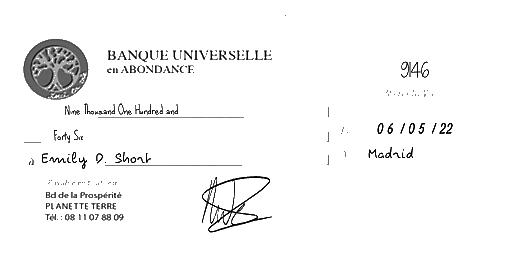 BANQUE UNIVERSELLE
en ABONDANCE
9146
Nine Thousand One Hundred and
Forty Six
06/05/22
à Emily D. Short
Madrid
Bd de la Prospérité
PLANETTE TERRE
Tél. : 08 11 07 88 09